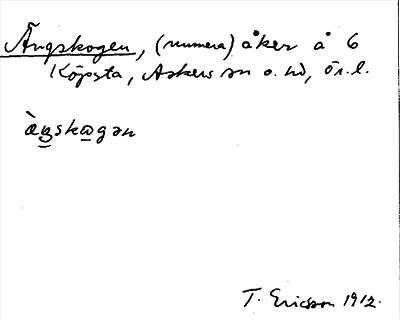 Ängskogen, (numera) åker å 6
Köpsta, Askers sn o. hd, ör. l.
T. Ericsson 1912.